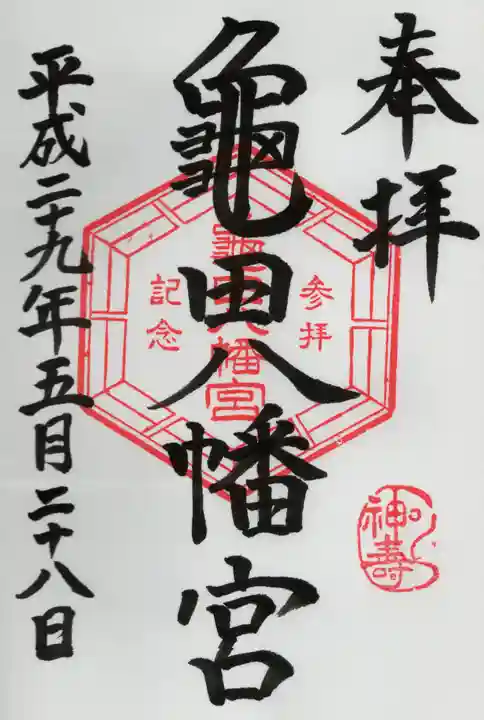 奉拝
龜田八幡宮
平成二十九年五月二十八日
参拝
龜田八幡宮
記念